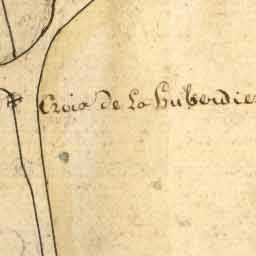 Croix de La huberdie